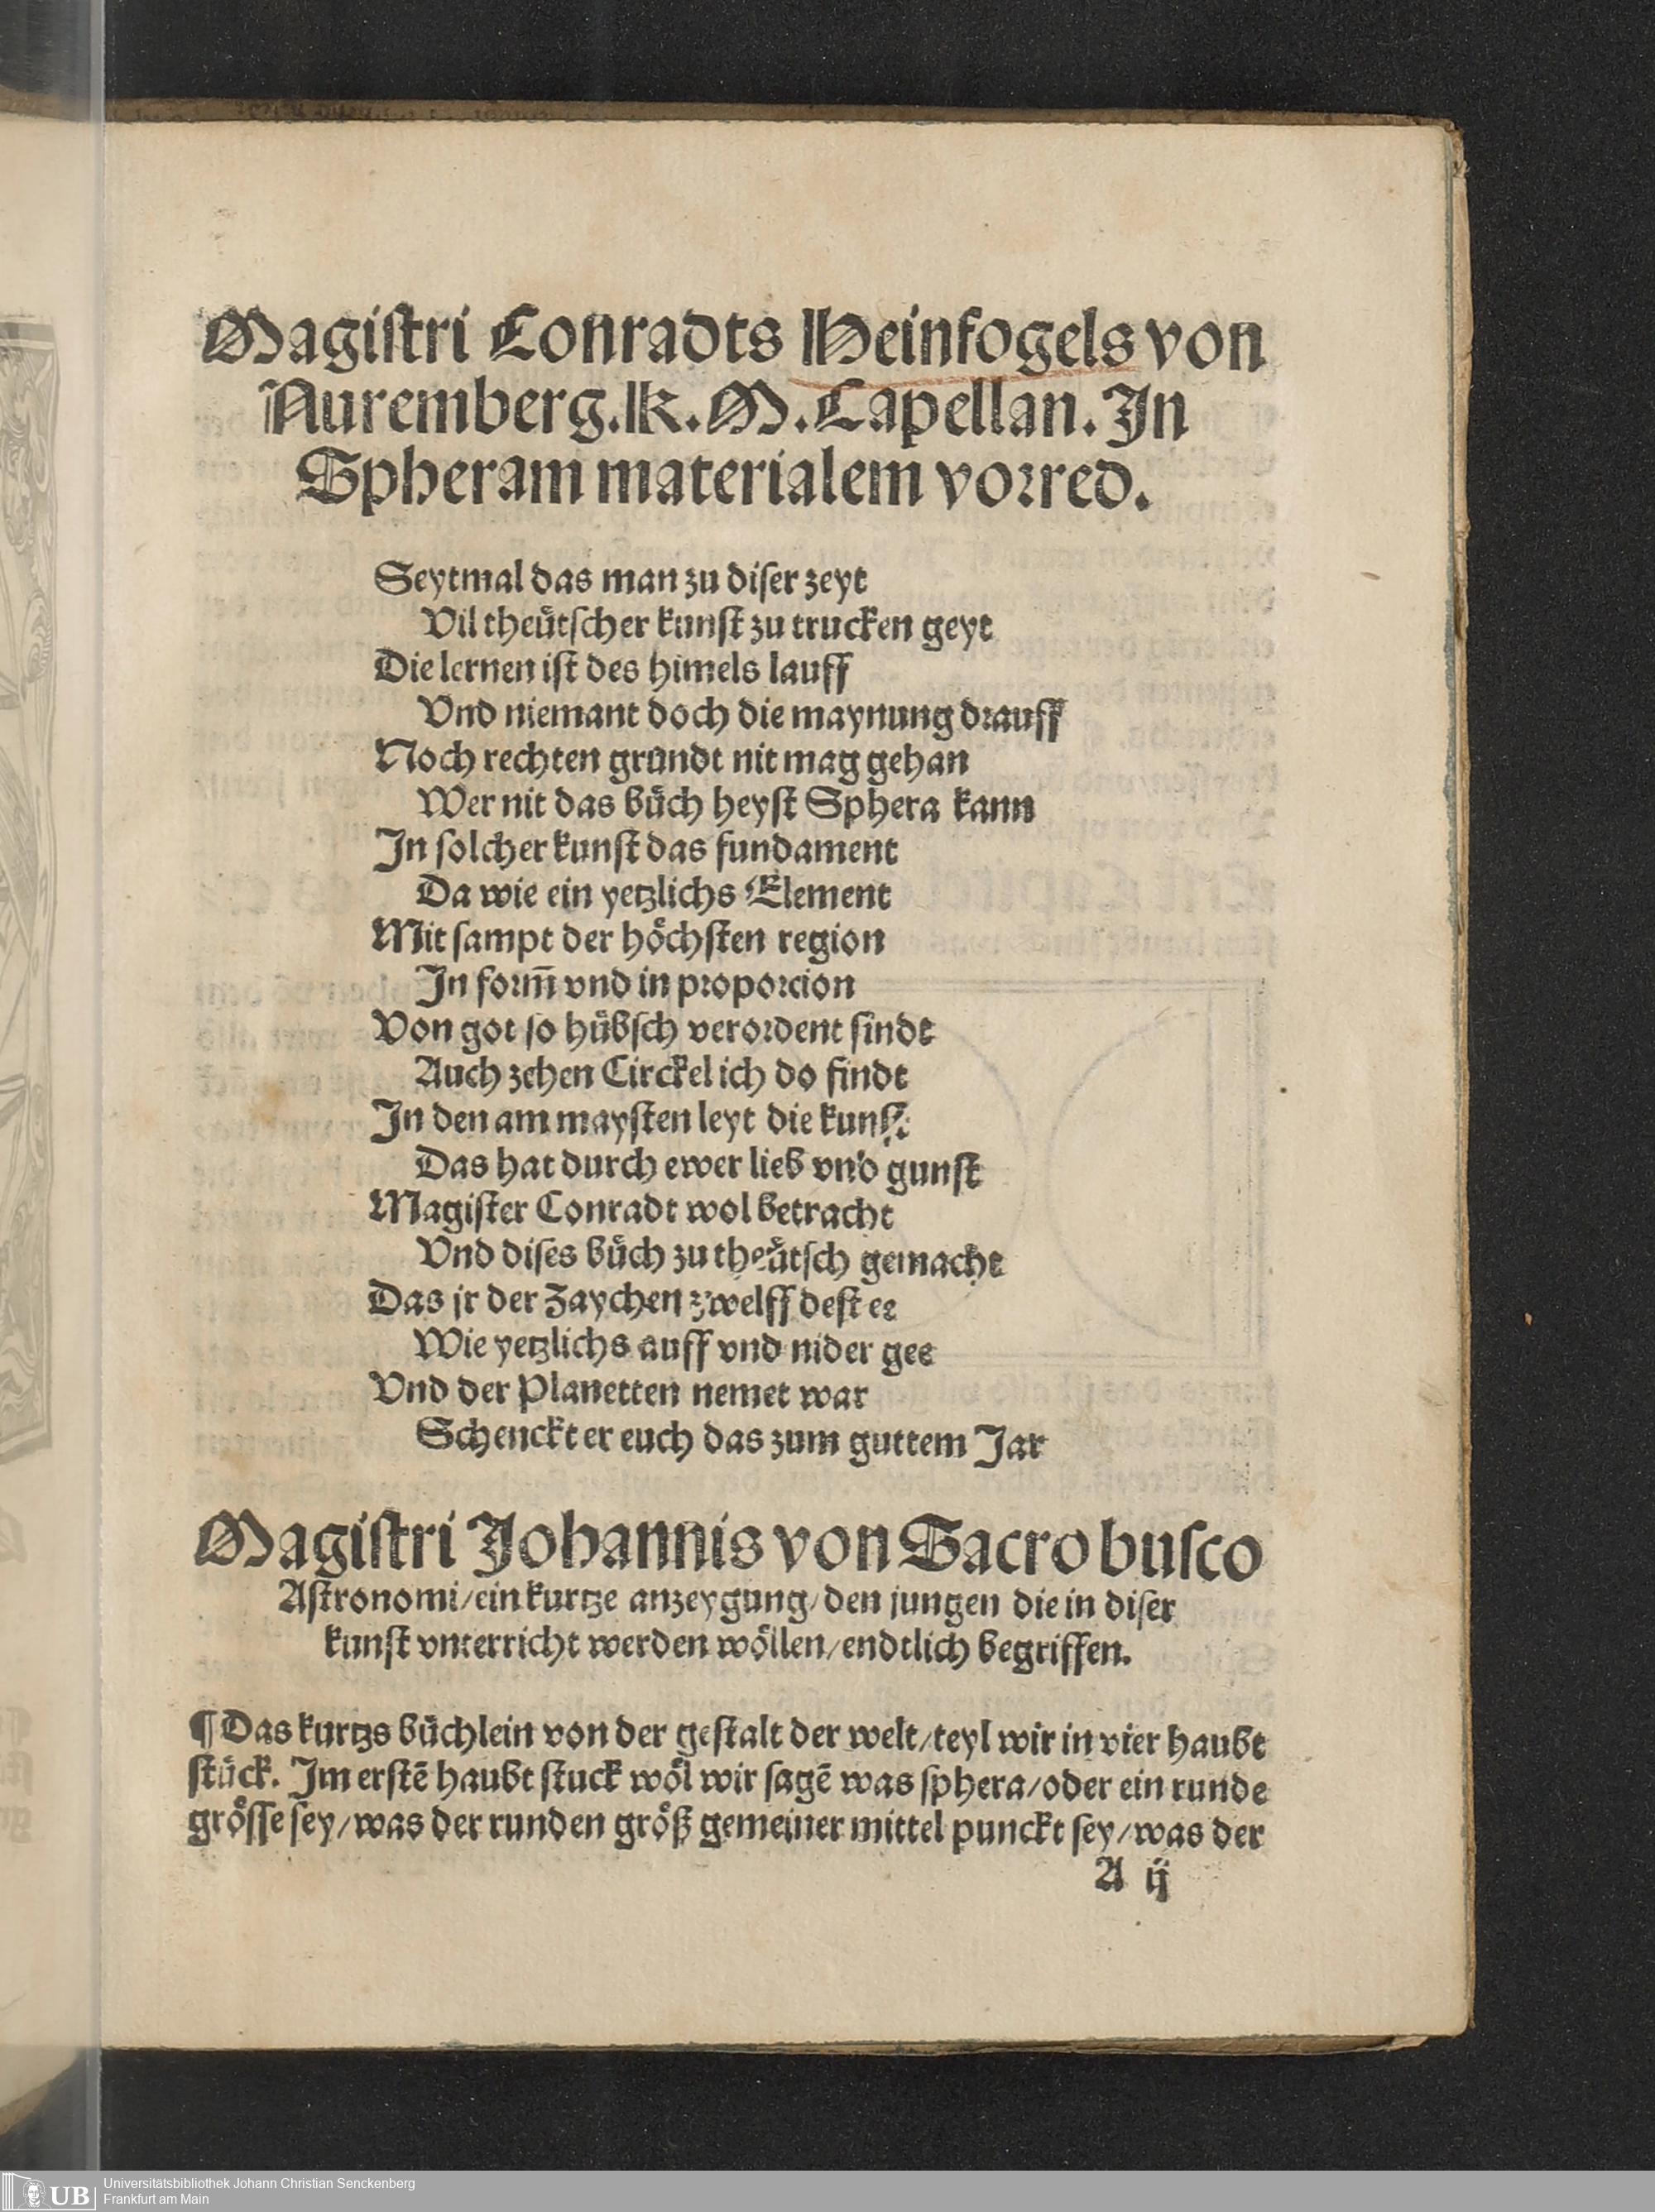 Magiſtri Conradts Heinfogels von
Nuremberg. K. M. Capellan. In
Spheram materialem vorred.
Seytmal das man zu diſer zeyt
Vil theuͤtſcher kunſt zu trucken geyt
Die lernen iſt des himels lauff
Vnd niemant doch die maynung drauff
Noch rechten grundt nit mag gehan
Wer nit das buͤch heyſt Sphera kann
In ſolcher kunſt das fundament
Da wie ein yetzlichs Element
Mit ſampt der hoͤchſten region
In form̄ vnd in proporcion
Von got ſo huͤbſch verordent ſindt
Auch zehen Circkel ich do findt
In den am mayſten leyt die kunſt
Das hat durch ewer lieb vnd gunſt
Magiſter Conradt wol betracht
Vnd diſes buͤch zu theuͤtſch gemacht
Das jr der Zaychen zwelff deſt ee
Wie yetzlichs auff vnd nider gee
Vnd der Planetten nemet war
Schenckt er euch das zum guttem Jar
Magiſtri Johannis von Sacro buſco
Aſtronomi/ein kurtze anzeygung/den jungen die in diſer
kunſt vnterricht werden woͤllen/endtlich begriffen.
¶ Das kurtzs buͤchlein von der geſtalt der welt/teyl wir in vier haubt
ſtuͤck. Im erſtē haubt ſtuck woͤl wir ſagē was ſphera/oder ein runde
groͤſſe ſey/was der runden groͤß gemeiner mittel punckt ſey/was der
A ij
UB
Universitätsbibliothek Johann Christian Senckenberg
Frankfurt am Main